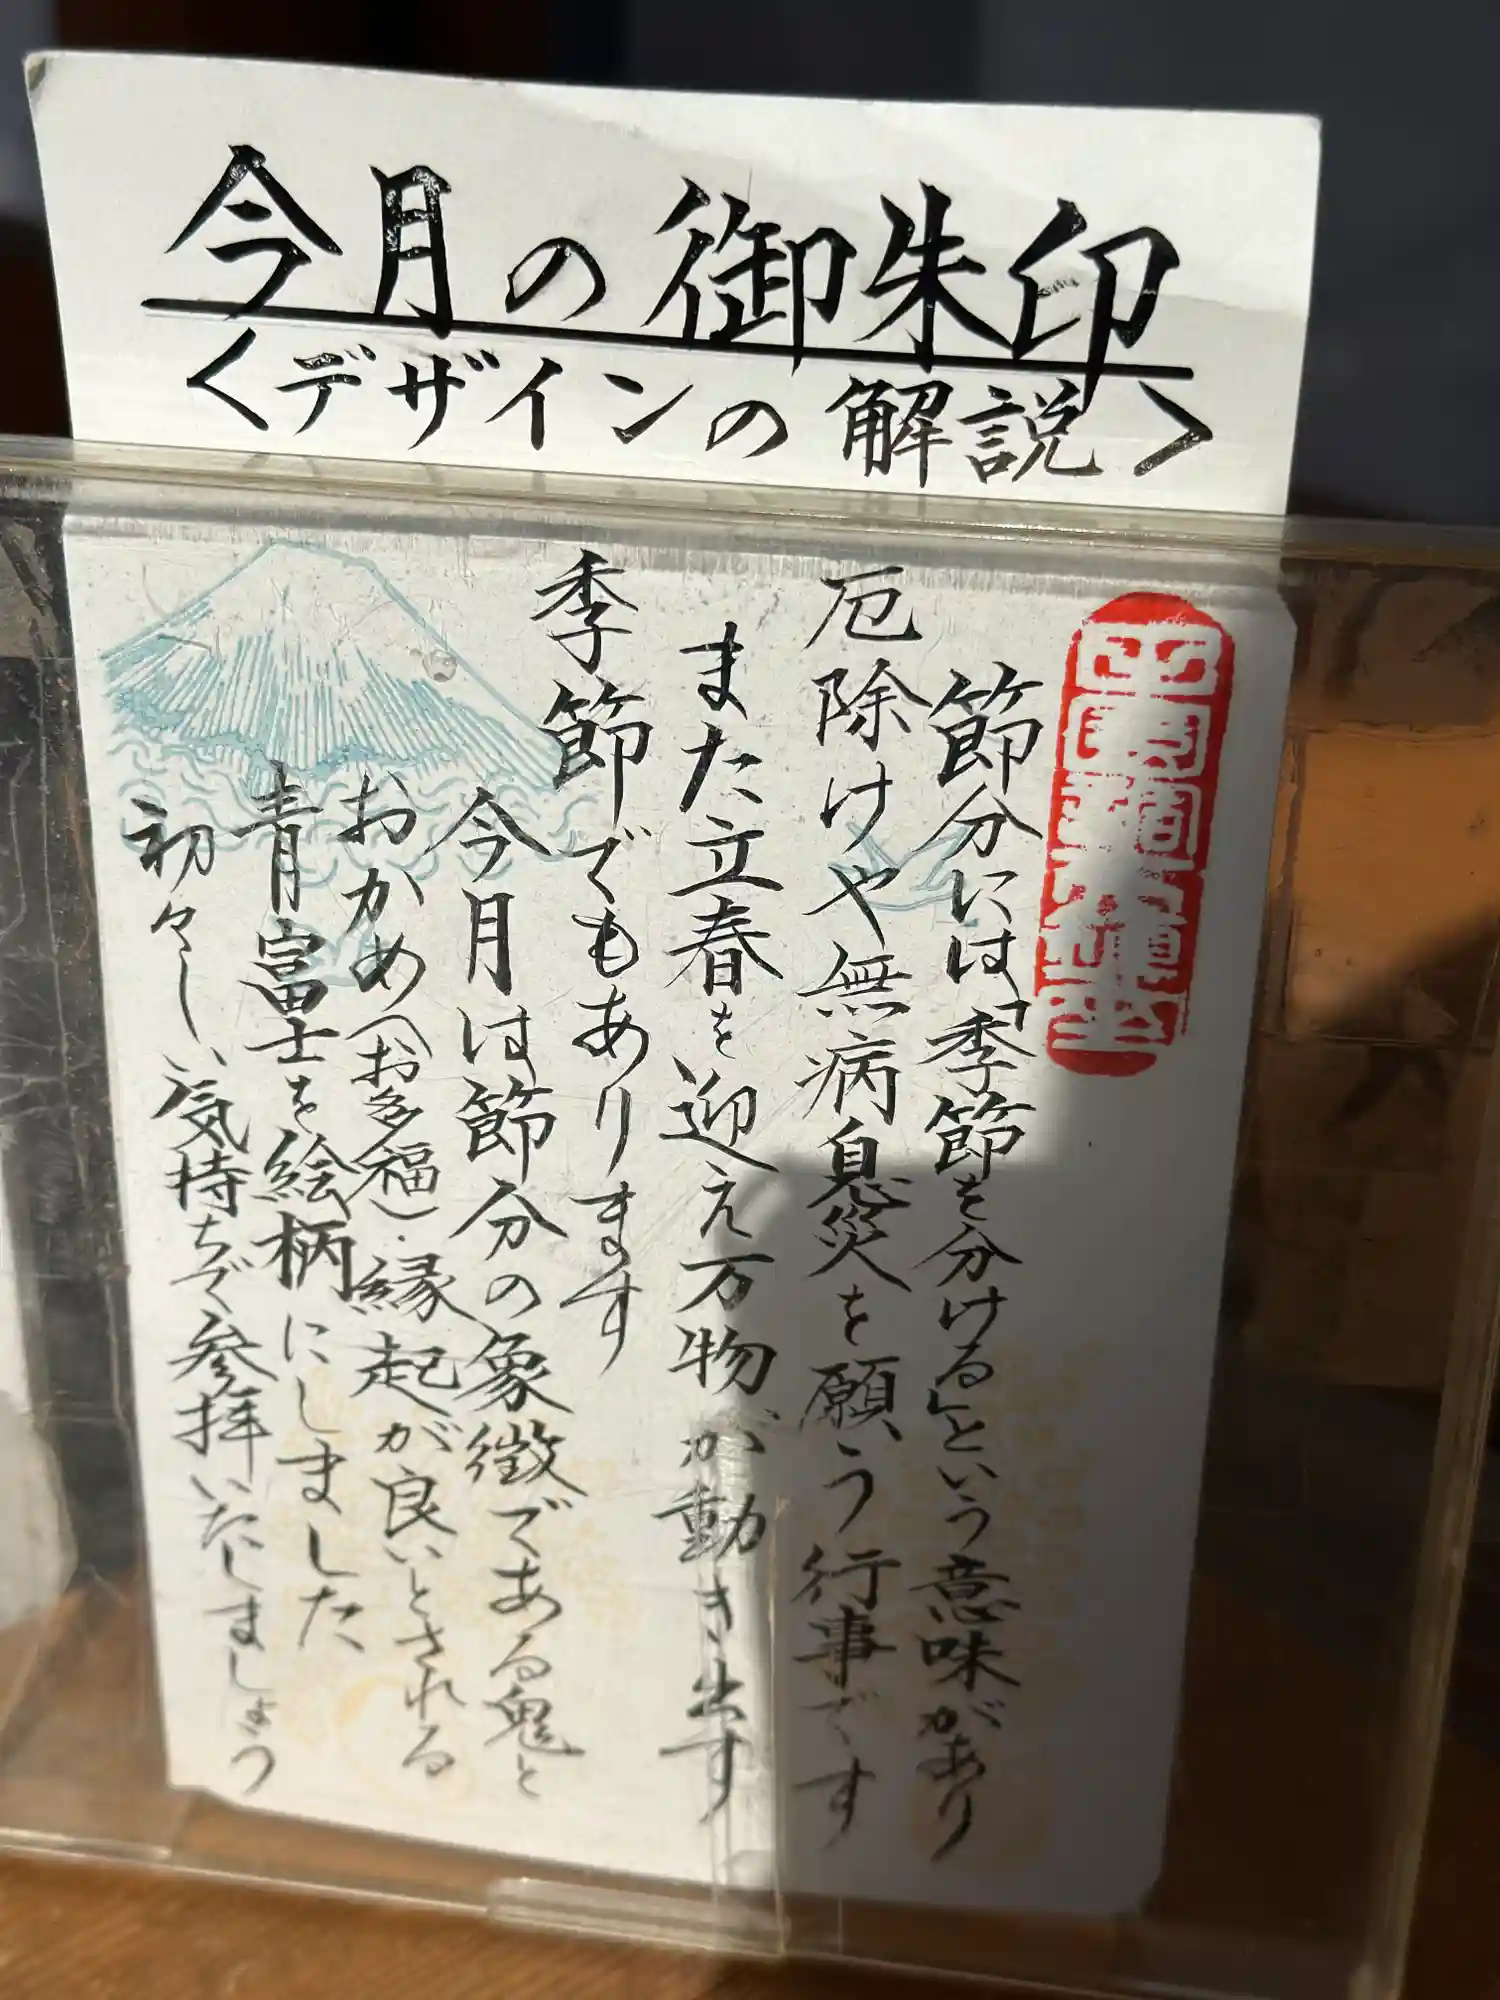 今月の御朱印
<デザインの解説>
節分には「季節を分ける」という意味があり
厄除けや無病息災を願う行事です
また立春を迎え万物が動き出す
季節でもあります
今月は節分の象徴である鬼と
おかめ(お多福)・縁起が良いとされる
青富士を絵柄にしました
初々しい気持ちで参拝いたしましょう